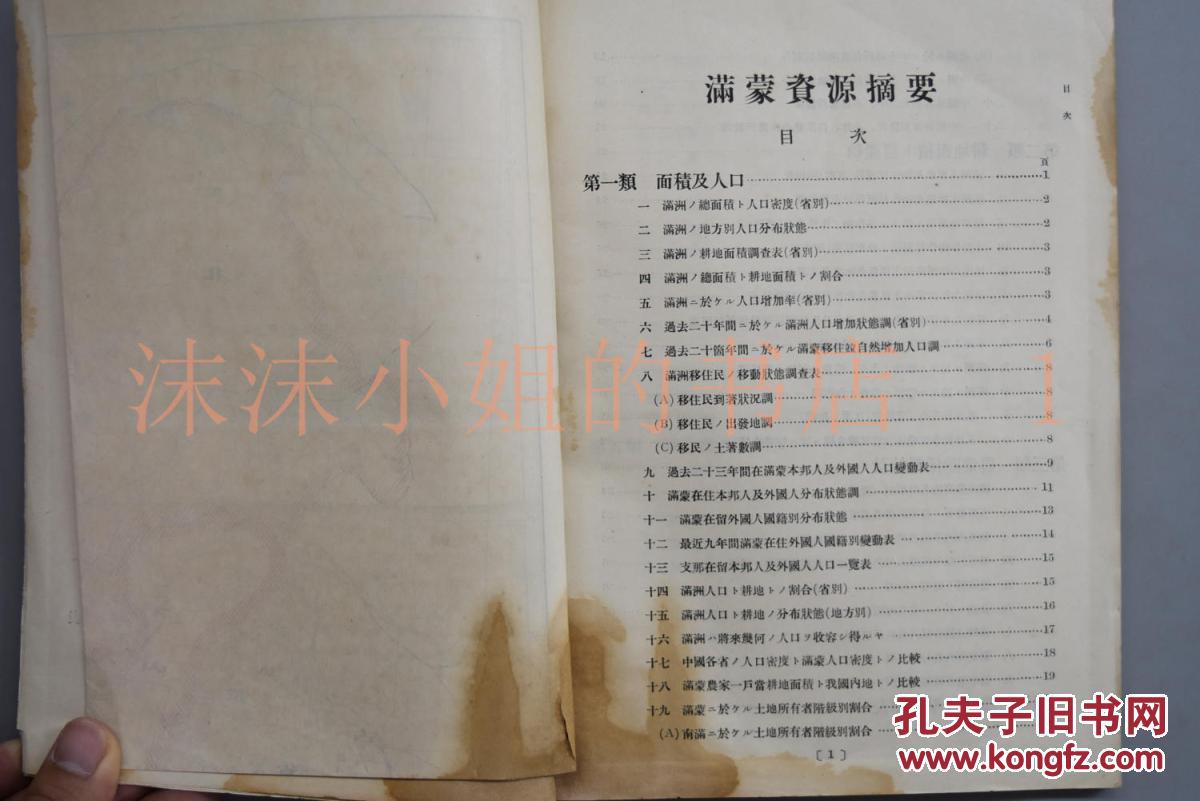 滿蒙資源摘要
目次
目次
頁
第一類 面積及人口 1
一 滿洲ノ總面積ト人口密度(省別) 2
二 滿洲ノ地方別人口分布狀態 2
三 滿洲ノ耕地面積調查表(省別) 3
四 滿洲ノ總面積ト耕地面積トノ割合 3
五 滿洲ニ於ケル人口增加率(省別) 3
六 過去二十年間ニ於ケル滿洲人口增加狀態調(省別) 4
七 過去二十箇年間ニ於ケル滿蒙移住竝自然增加人口調 6
八 滿洲移住民ノ移動狀態調查表 8
(A) 移住民到著狀況調 8
(B) 移住民ノ出發地調 8
(C) 移民ノ土著數調 8
九 過去二十三年間在滿蒙本邦人及外國人人口變動表 9
十 滿蒙在住本邦人及外國人分布狀態調 11
十一 滿蒙在留外國人國籍別分布狀態 13
十二 最近九年間滿蒙在住外國人國籍別變動表 14
十三 支那在留本邦人及外國人人口一覽表 15
十四 滿洲人口ト耕地トノ割合(省別) 15
十五 滿洲人口ト耕地ノ分布狀態(地方別) 16
十六 滿洲ハ將來幾何ノ人口ヲ收容シ得ルヤ 17
十七 中國各省ノ人口密度ト滿蒙人口密度トノ比較 18
十八 滿蒙農家一戶當耕地面積ト我國內地トノ比較 19
十九 滿蒙ニ於ケル土地所有者階級別割合
(A) 南滿ニ於ケル土地所有者階級別割合
[1]
沫沫小姐的书店 1
孔夫子旧书网
www.kongfz.com